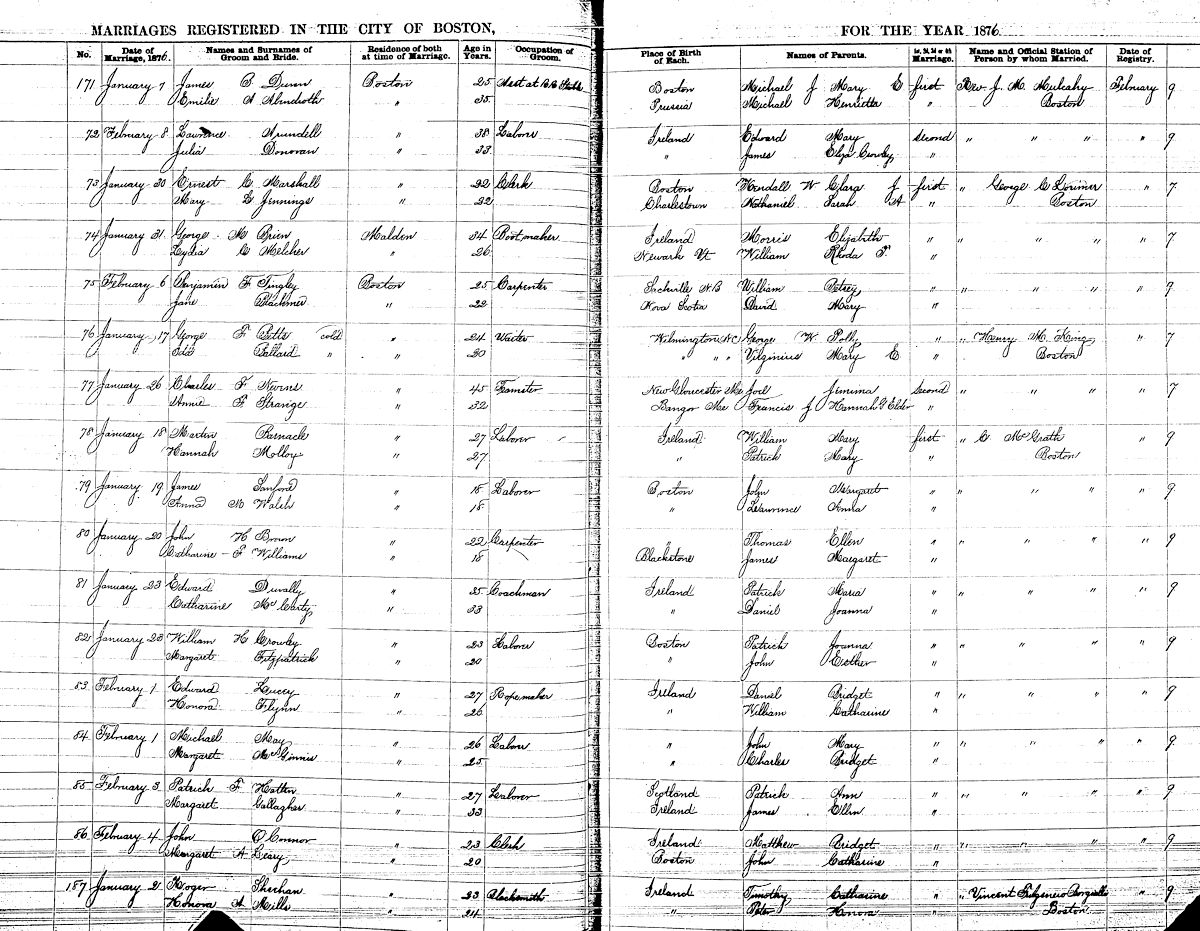 MARRIAGES REGISTERED IN THE CITY OF BOSTON, FOR THE YEAR 1876
No. Date of Marriage, 1876. Names and Surnames of Groom and Bride. Residence of both at time of Marriage. Age in Years. Occupation of Groom. Place of Birth of Each. Names of Parents. 1st, 2d, 3d or 4th Marriage. Name and Official Station of Person by whom Married. Date of Registry.
171 January 7 James Dunn Boston 25 Boston Michael J Mary E first Rev J. M. Mulcahy February 9
Emilie A Almdroth " 35 Prussia Michael Henrietta " Boston
72 February 8 Lawrence Arundell " 38 Laborer Ireland Edward Mary second " " " " 9
Julia Donovan " 33 " James Eliza Crowley "
73 January 30 Ernest C Marshall " 22 Clerk Boston Kendall W Clara J first " George C Lorimer " 7
Mary E Jennings " 22 Charlestown Nathaniel Sarah A " Boston
74 January 31 George M Brien Maldon 34 Bootmaker Ireland Morris Elizabeth " " " " " 7
Lydia C Melcher " 26 Newark Vt William Rhoda F. "
75 February 6 Benjamin F Tingley Boston 25 Carpenter Sackville N.B William Betsey " " " " " 9
Jane Blackmer " 22 Nova Scotia David Mary "
76 January 17 George F Pitts cold " 24 Waiter Wilmington N.C George W Polly " " Henry M. King " 7
Ida Ballard " " 20 " " " Virginius Mary E " Boston
77 January 26 Charles F Nevins " 45 Teamster New Gloucester Me Joel Jemima second " " " " 7
Annie F Strange " 32 Bangor Me Francis J Hannah G Elder "
78 January 18 Martin Barnacle " 27 Laborer Ireland William Mary first " C McGrath " 9
Hannah Molloy " 27 " Patrick Mary " Boston
79 January 19 James Sanford " 18 Laborer Boston John Margaret " " " " " 9
Anna M Walsh " 18 " Lawrence Anna "
80 January 20 John H Brown " 22 Carpenter " Thomas Ellen " " " " " 9
Catharine F Williams " 18 Blackstone James Margaret "
81 January 23 Edward Duvally " 35 Coachman Ireland Patrick Maria " " " " " 9
Catharine McCarty " 33 " Daniel Joanna "
82 January 23 William H Crowley " 23 Laborer Boston Patrick Joanna " " " " " 9
Margaret Fitzpatrick " 20 " John Esther "
83 February 1 Edward Lucey " 27 Ropemaker Ireland Daniel Bridget " " " " " 9
Honora Flynn " 26 " William Catharine "
84 February 1 Michael May " 26 Laborer " John Mary " " " " " 9
Margaret McGinnis " 25 " Charles Bridget "
85 February 3 Patrick F Hatton " 27 Laborer Scotland Patrick Ann " " " " " 9
Margaret Gallagher " 33 Ireland James Ellen "
86 February 4 John O'Connor " 23 Clerk Ireland Matthew Bridget " " " " " 9
Margaret A Leary " 20 Boston John Catharine "
187 January 21 Roger Sheehan " 23 Blacksmith Ireland Timothy Catharine " " Vincent " 9
Honora A Mills " 24 " Peter Honora " Boston